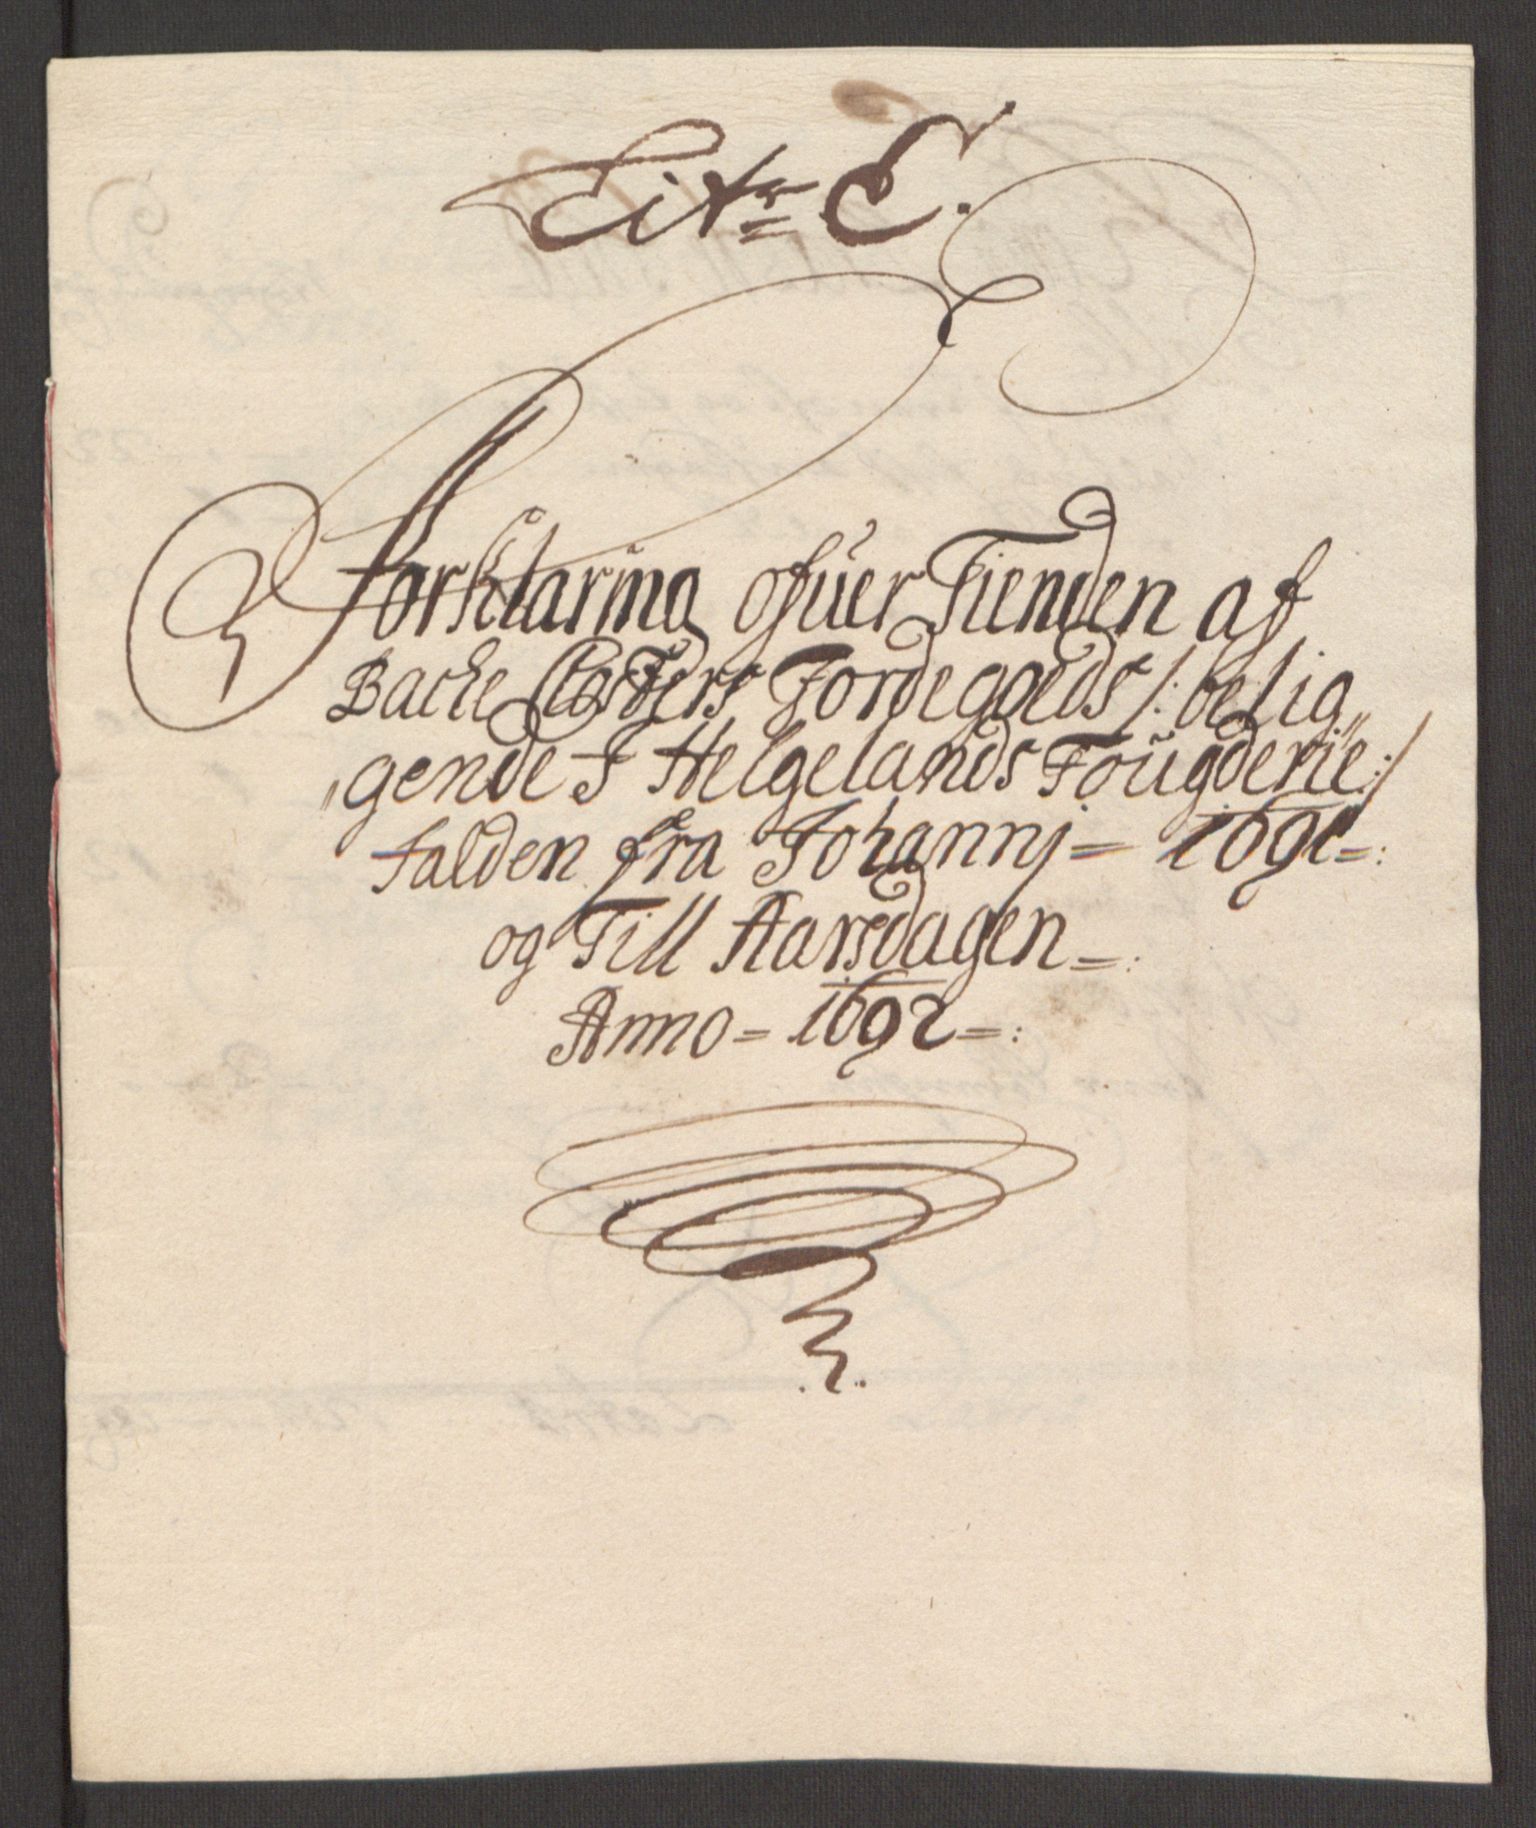 Litr: C.
Forklaring ofuer Tienden af
Backe Closters Jordegoeds /: belig„
„gende I Helgelands Fougderie :/
falden fra Johannj = 1691 =:
og Till Aarsdagen =:
Anno = 1692 =: